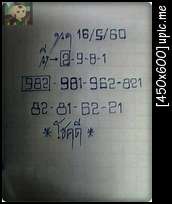 งวด 16/5/60
2-9-8-1
982 - 981-962-821
82-81-62-21
* โชคดี *
[450x600] upic.me